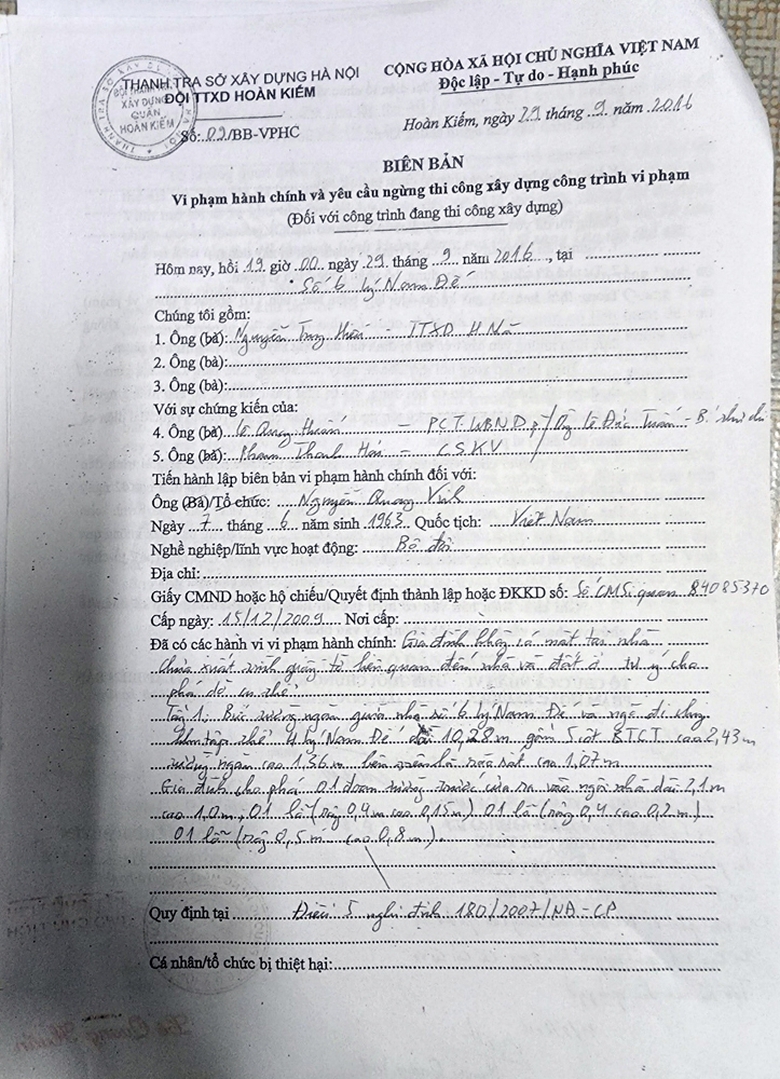 THANH TRA SỞ XÂY DỰNG HÀ NỘI
ĐỘI TTXD HOÀN KIẾM
XÂY DỰNG
QUẬN
HOÀN KIẾM
Số: 02/BB-VPHC
CỘNG HÒA XÃ HỘI CHỦ NGHĨA VIỆT NAM
Độc lập - Tự do - Hạnh phúc
Hoàn Kiếm, ngày 29 tháng 9 năm 2016
BIÊN BẢN
Vi phạm hành chính và yêu cầu ngừng thi công xây dựng công trình vi phạm
(Đối với công trình đang thi công xây dựng)
Hôm nay, hồi 19 giờ 00 ngày 29 tháng 9 năm 2016, tại
Số 6 Lý Nam Đế
Chúng tôi gồm:
1. Ông (bà): Nguyễn - TTXD
2. Ông (bà):
3. Ông (bà):
Với sự chứng kiến của:
4. Ông (bà) Lê Quang - PCT.UBND P / Ông Lê Đức - Bí thư
5. Ông (bà): Phạm Thanh - CSKV
Tiến hành lập biên bản vi phạm hành chính đối với:
Ông (Bà)/Tổ chức: Nguyễn Quang Vinh
Ngày 7 tháng 6 năm sinh 1963 Quốc tịch: Việt Nam
Nghề nghiệp/lĩnh vực hoạt động: Bộ đội
Địa chỉ:
Giấy CMND hoặc hộ chiếu/Quyết định thành lập hoặc ĐKKD số: Số CMSĩ quan 84085370
Cấp ngày: 15/12/2009 Nơi cấp:
Đã có các hành vi vi phạm hành chính: Gia đình không có mặt tại nhà
Chưa xuất trình giấy tờ liên quan đến nhà và đất ở tự ý cho
phá dỡ cụ thể:
1; Bức tường ngăn giữa nhà số 6 Lý Nam Đế và ngõ đi chung
khu tập thể 4 Lý Nam Đế dài 10,28m gồm 5 cột BTCT cao 2,43m
tường ngăn cao 1,36m bên trên là sắt cao 1,07m
Gia đình cho phá 01 đoạn tường trước cửa ra vào ngôi nhà dài 2,1m
cao 1,0m; 01 lỗ (rộng 0,4m cao 0,15m) 01 lỗ (rộng 0,4 cao 0,2m)
01 lỗ (rộng 0,5m cao 0,8m).
Quy định tại Điều 5 nghị định 180/2007/NĐ-CP
Cá nhân/tổ chức bị thiệt hại: